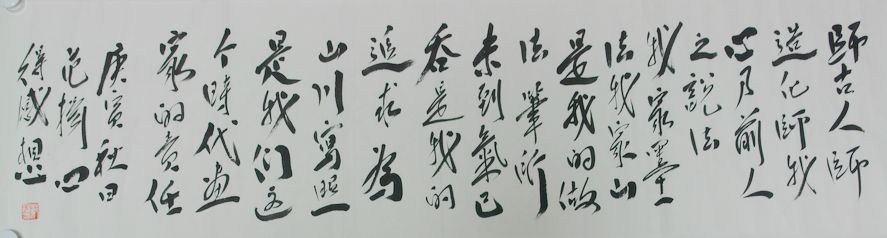 師古人師
造化師我
心乃前人
之說法
我家墨
法我家山
是我的做
法筆所
未到氣已
吞是我的
追求為
山川寫照
是我們這
个時代画
家的責任
庚寅秋日
范揚心
得感想